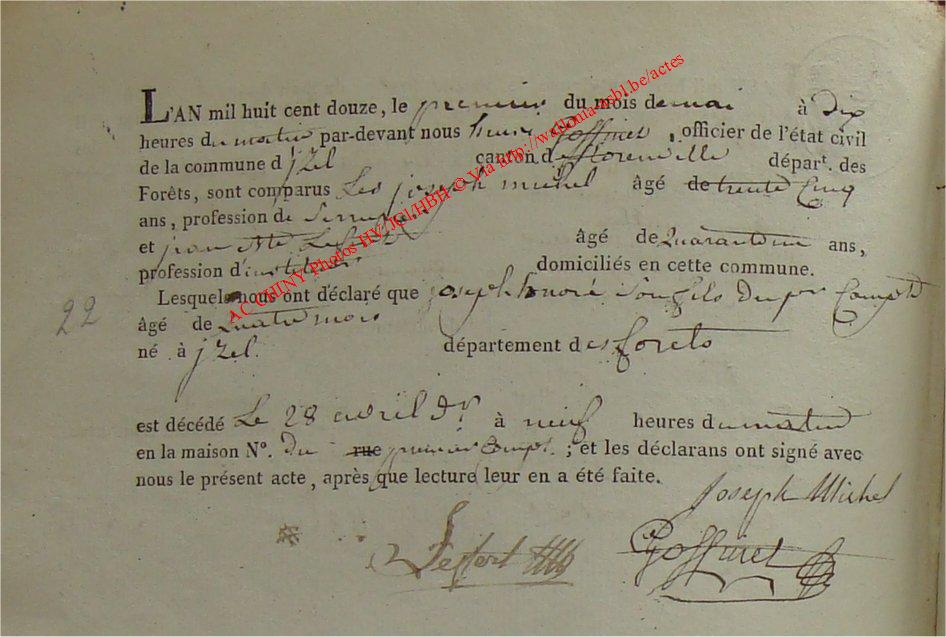 L'AN mil huit cent douze, le premier du mois de mai à dix
heures du matin par-devant nous henri Goffinet, officier de l'état civil
de la commune d'jzel canton de florenville départ. des
Forêts, sont comparus Les joseph michel âgé de trente Cinq
ans, profession de
et jean âgé de Quarante un ans,
profession d'instituteur domiciliés en cette commune.
Lesquels nous ont déclaré que joseph honoré Son fils du pr Compt
âgé de quatre mois
né à jzel. département des forets
22
est décédé Le 28 avril dr à neuf heures du matin
en la maison N°. du rue premier Compt. ; et les déclarans ont signé avec
nous le présent acte, après que lecture leur en a été faite.
Joseph Michel
Goffinet
AC CHINY Photos HY/JCI/HBH © Via http://wallonia-asbl.be/actes